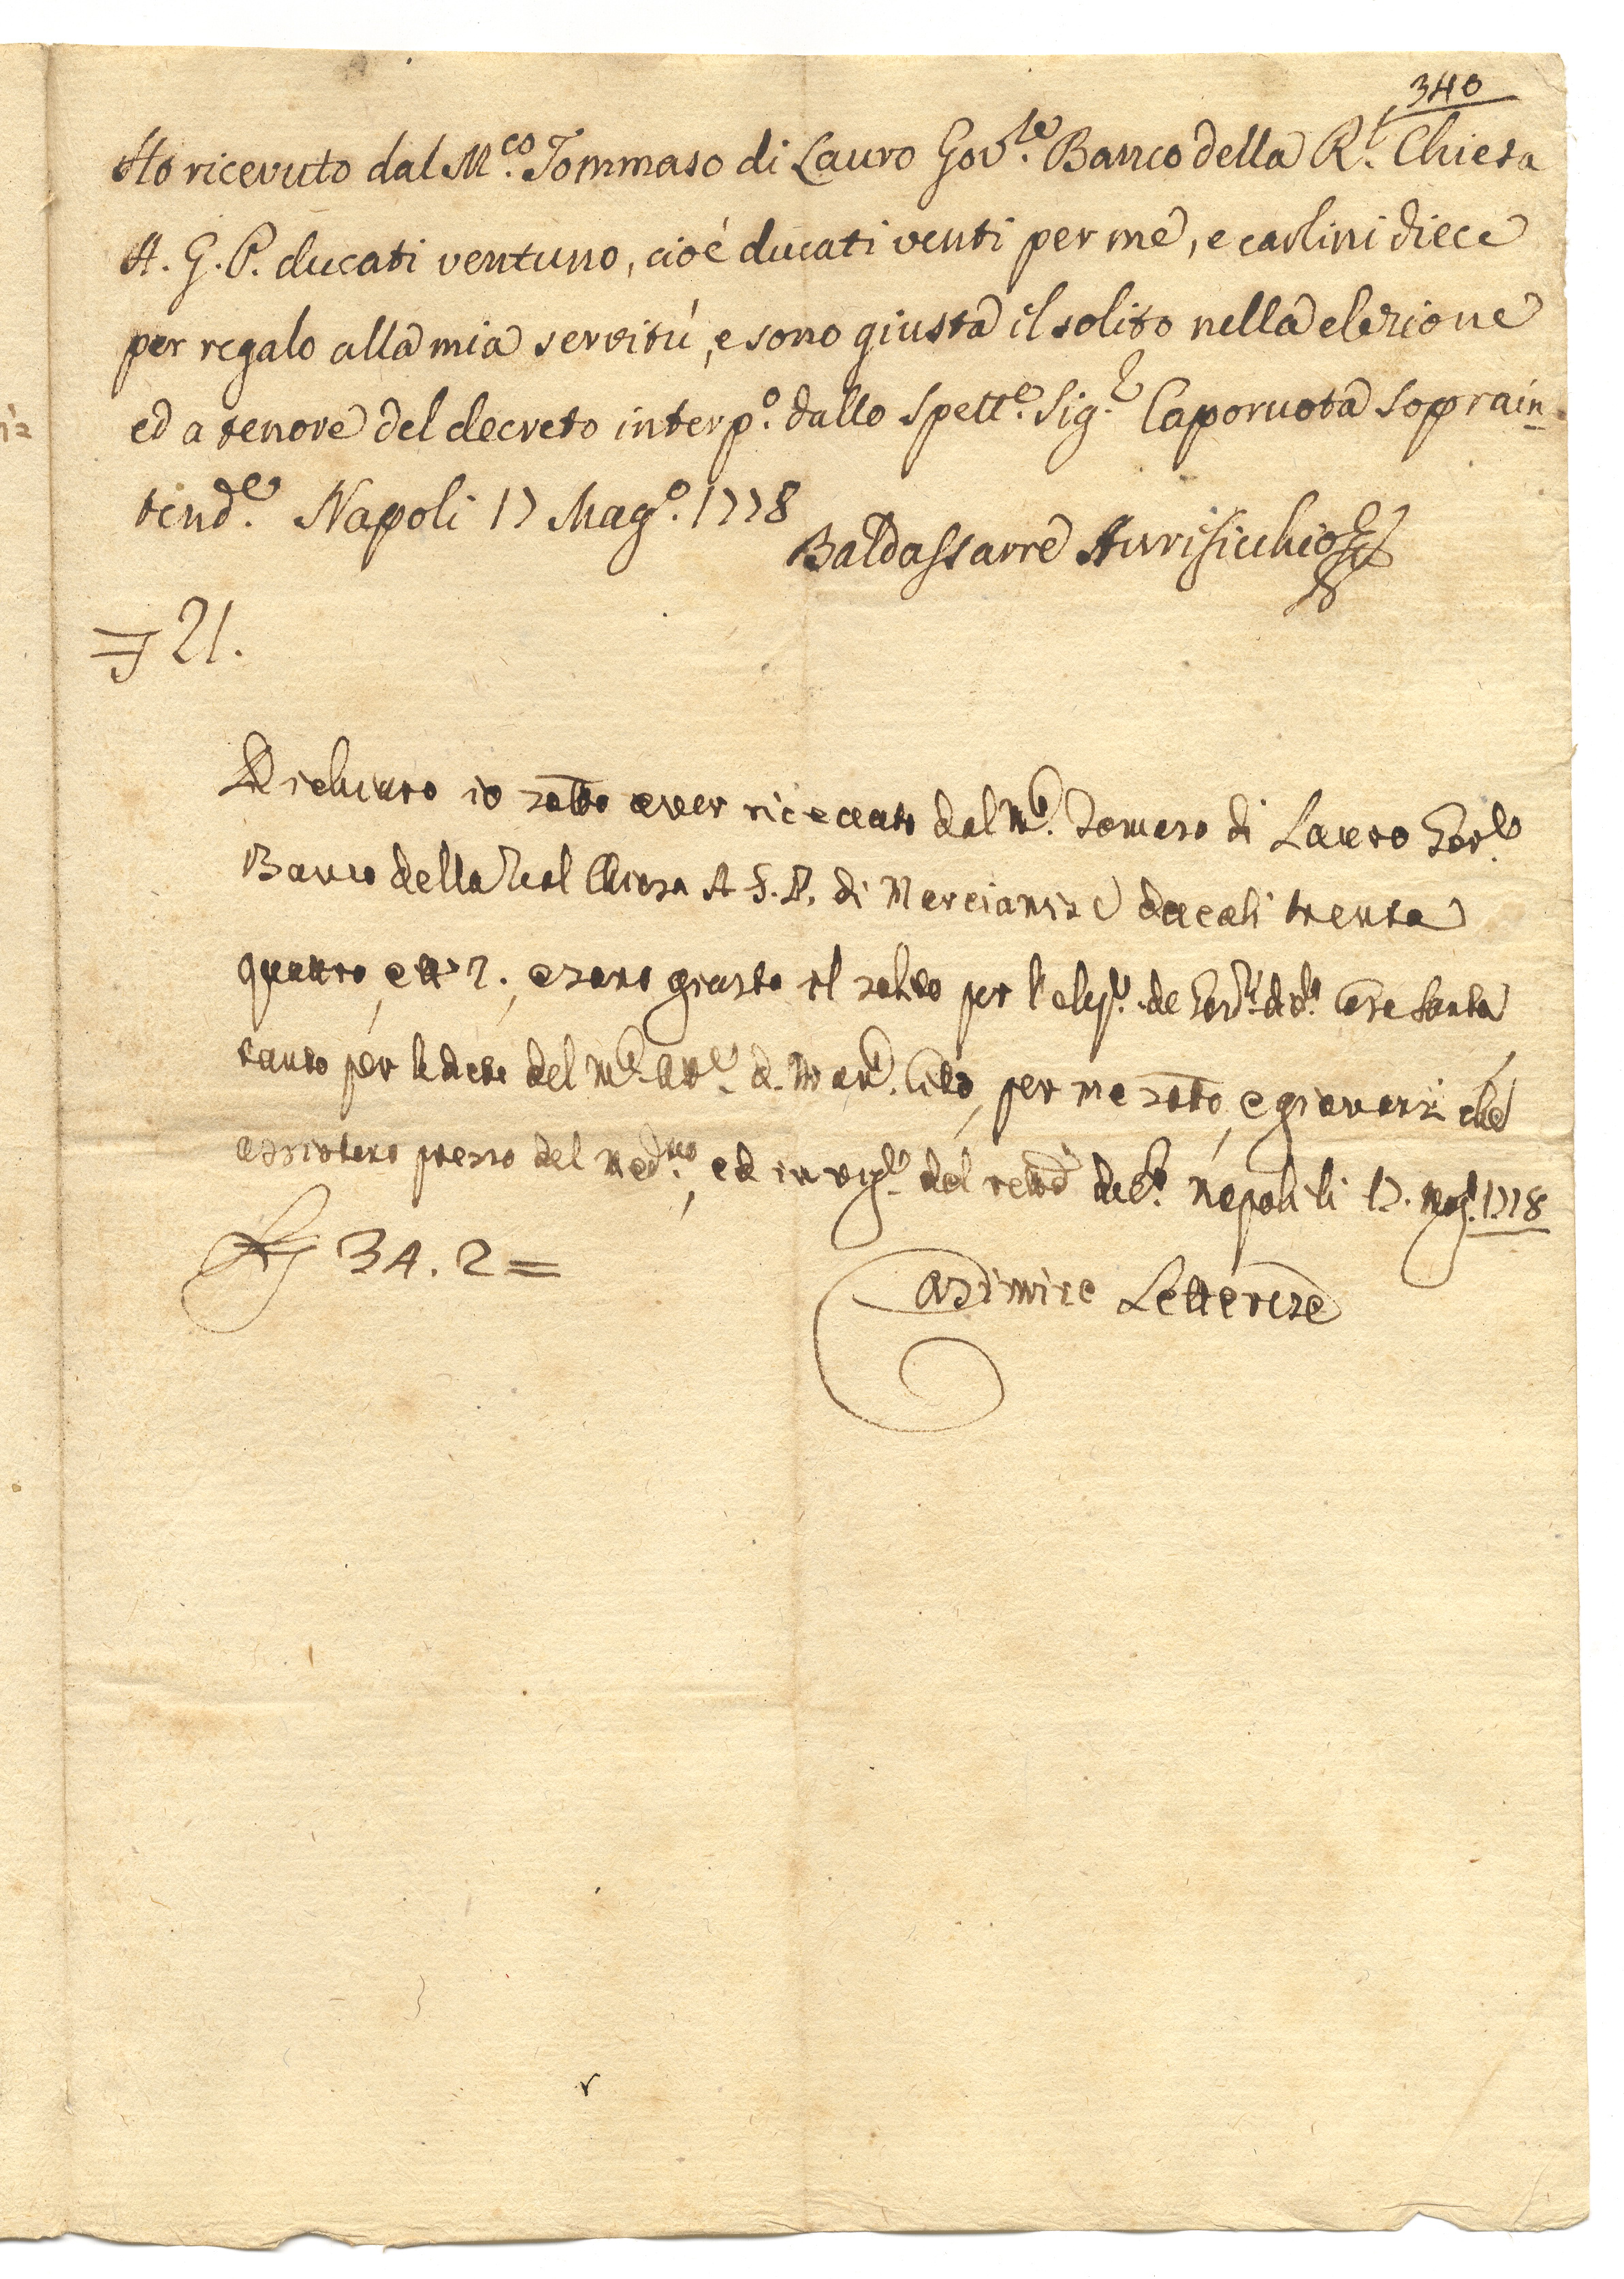 340
Ho ricevuto dal M.co Tommaso di Lauro Gov.le Banco della R.l Chiesa
A. G. P. ducati ventuno, cioé ducati venti per me, e carlini diece
per regalo alla mia servitú, e sono giusta il solito nella elezione
ed a tenore del decreto interp.o dallo Spett.e Sig.r Caporuota Soprain-
tend.e Napoli 17 Mag.o 1778
Baldassarre Aurisicchio
21.
Dichiaro io sotto aver ricevuto dal M.co Tomaso di Lauro Gov.le
Banco della Real Chiesa A. G. P. di Marcianise ducati trenta
quattro, e sono giusto il solito per l'elez.e de Gov.ri di d.a Casa Santa
tanto per le diete del per me sotto, e giovani che
assistono presso del med.mo, ed in vig.e del Napoli li 17. Mag. 1778
34. 2 =
Casimiro Letterese